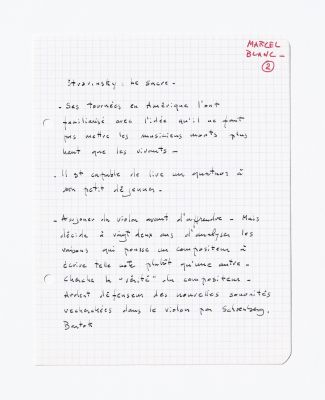 MARCEL
BLANC _
2
Stravinsky : Le Sacre -
- Ses tournées en Amérique l'ont
familiarisé avec l'idée qu'il ne faut
pas mettre les musiciens morts plus
haut que les vivants -
- Il est capable de lire un quatuor à
son petit déjeuner.
- du violon avant d'apprendre - Mais
décide à vingt deux ans d'analyser les
raisons qui pousse un compositeur à
écrire telle note plutôt qu'une autre -
cherche la "vérité" du compositeur -
Ardent défenseur des nouvelles sonorités
recherchées dans le violon par Schoenberg,
Bartok